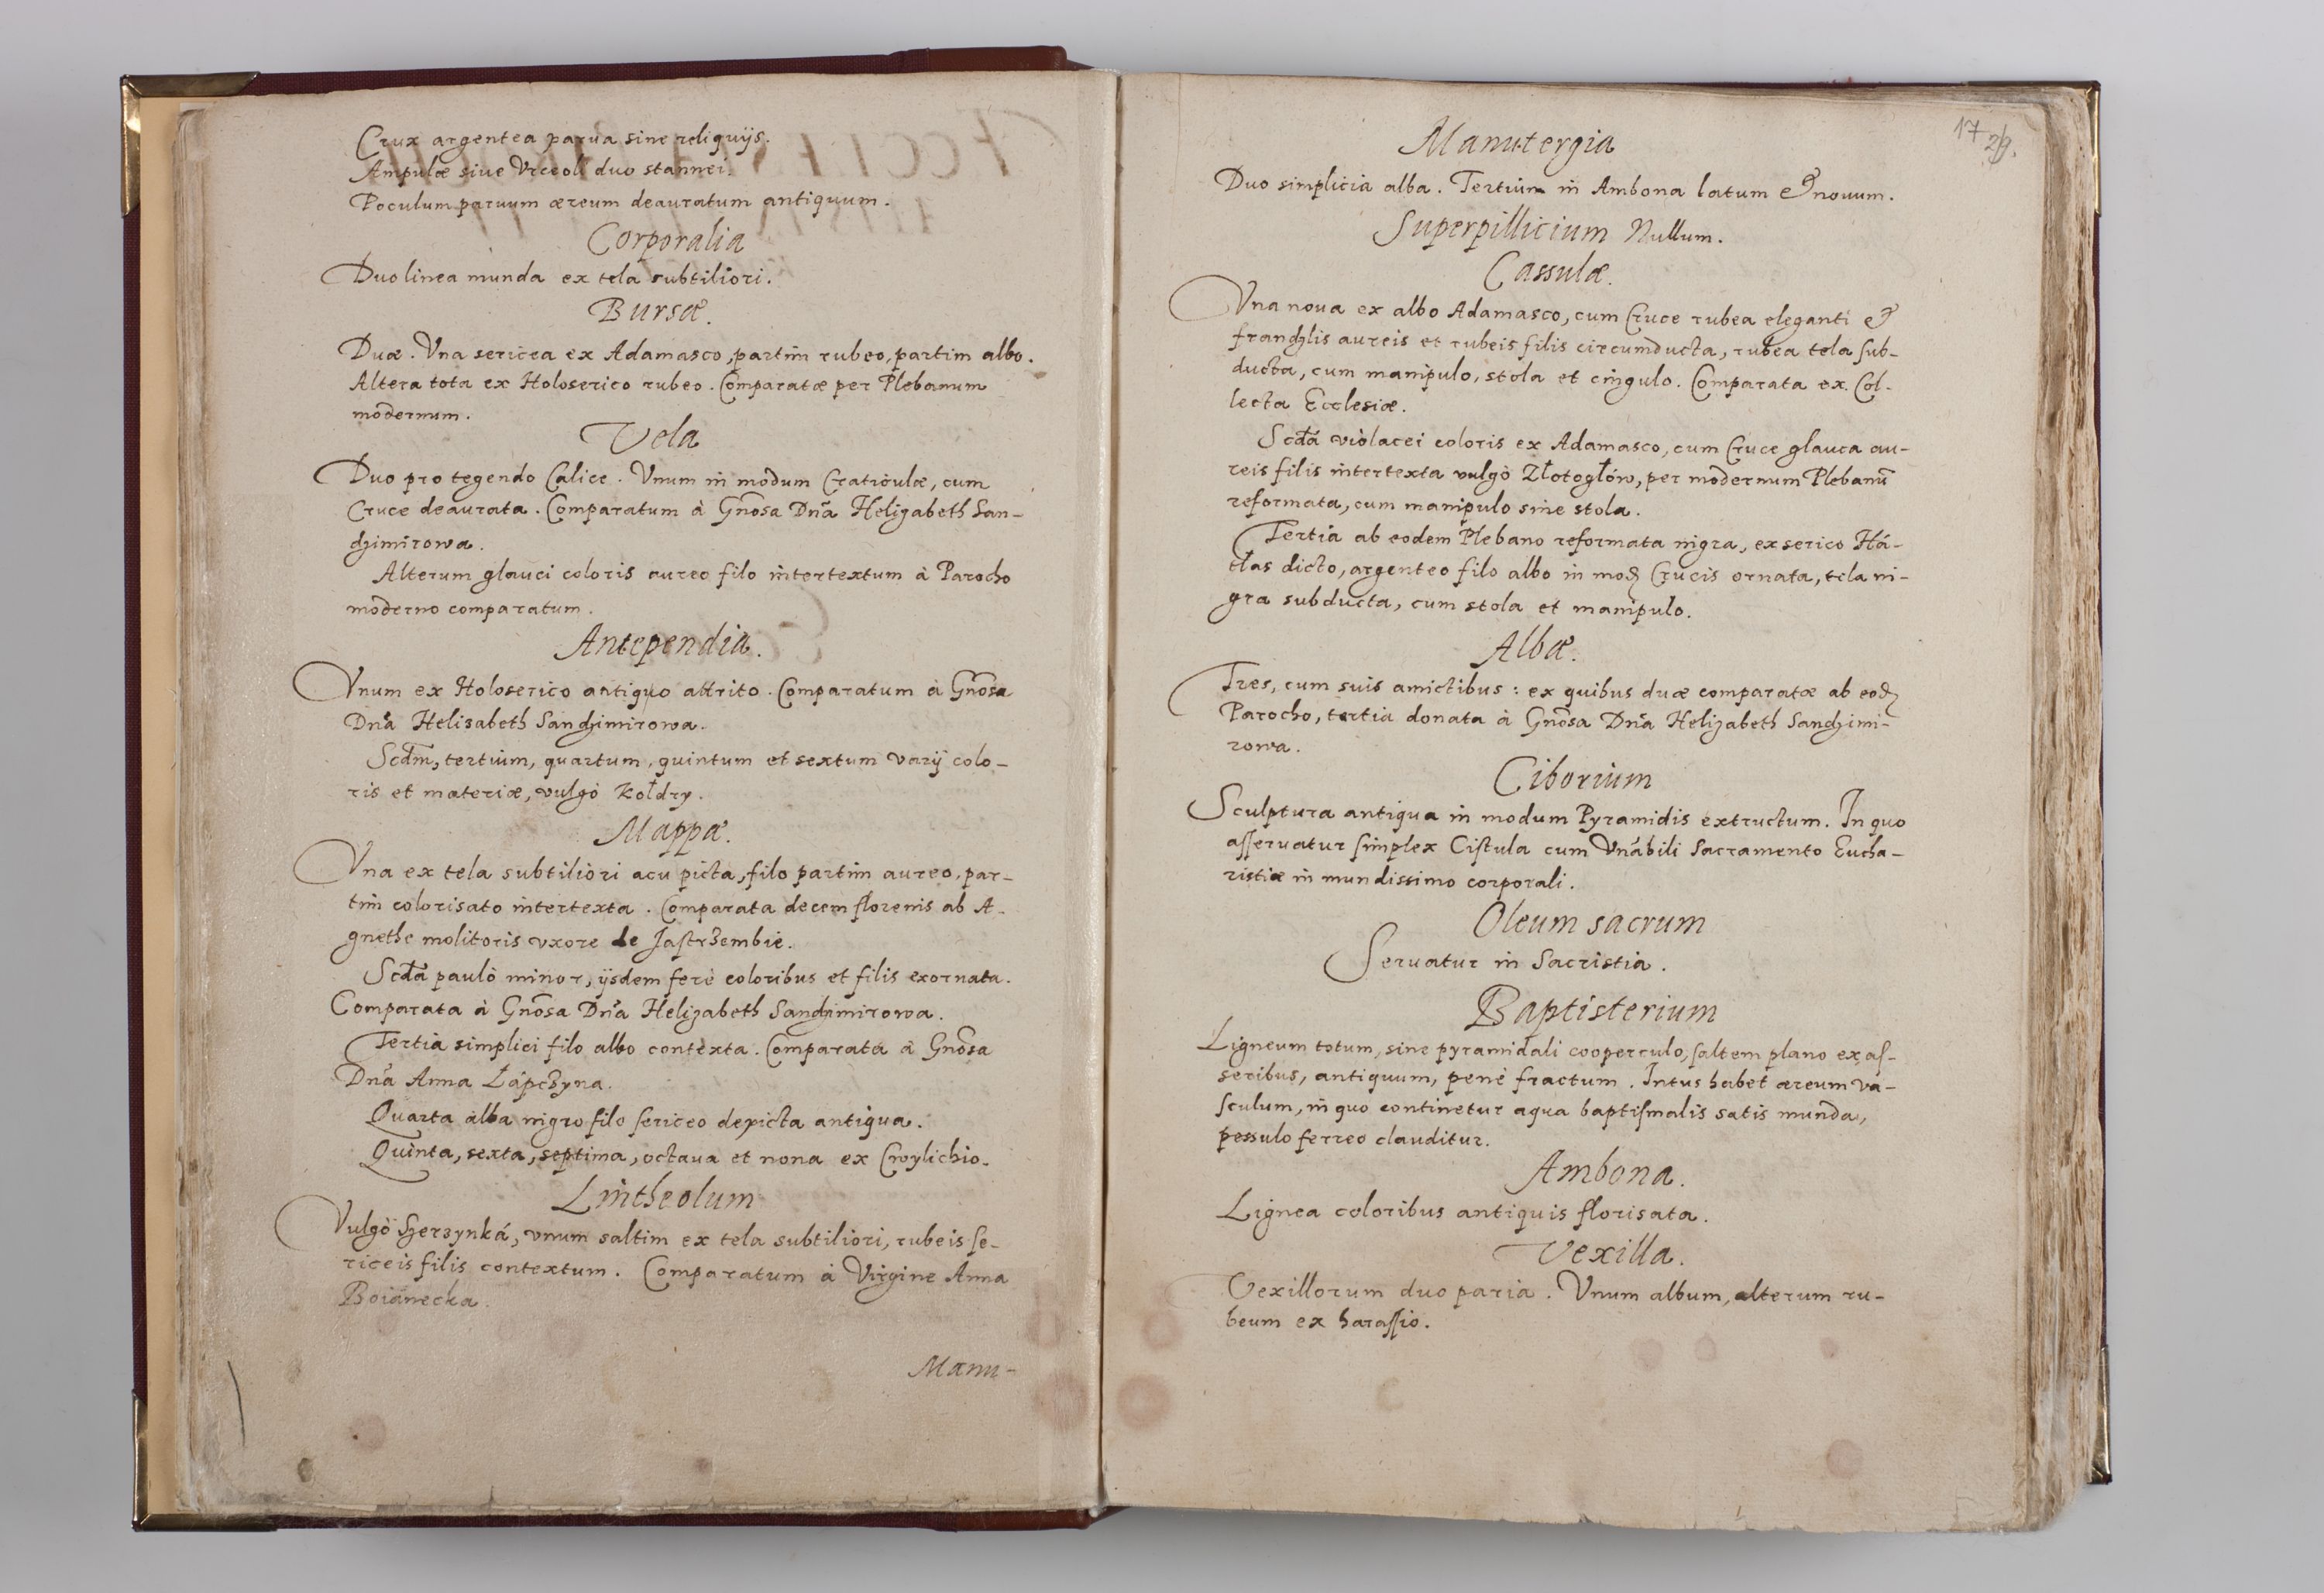 Crux argentea parua sine reliquijs.
Ampulæ siue Vrceoli duo stannei.
Poculum paruum æreum deauratum antiquum.
Corporalia
Duo linea munda ex tela subtiliori.
Bursæ.
Duæ. Vna sericea ex Adamasco, partim rubeo, partim albo.
Altera tota ex Holoserico rubeo. Comparatæ per Plebanum
modernum.
Vela
Duo pro tegendo Calice. Vnum in modum Craticulæ, cum
Cruce deaurata. Comparatum à Gnõsa Dnã Helizabeth San-
dzimirowa.
Alterum glauci coloris aureo filo intertextum à Parocho
moderno comparatum.
Antependia.
Vnum ex Holoserico antiquo attrito. Comparatum à Gnõsa
Dnã Helisabeth Sandzimirowa.
Scdm̃, tertium, quartum, quintum et sextum varij colo-
ris et materiæ, vulgò Kołdry.
Mappæ.
Vna ex tela subtiliori acu picta, filo partim aureo, par-
tim colorisato intertexta. Comparata decem florenis ab A-
gnethe molitoris vxore de Jastrzembie.
Scdã paulò minor, ijsdem ferè coloribus et filis exornata.
Comparata à Gnõsa Dnã Helizabeth Sandzimirowa.
Tertia simplici filo albo contexta. Comparata à Gnõsa
Dnã Anna Łápczyna.
Quarta alba nigro filo sericeo depicta antiqua.
Quinta, sexta, septima, octaua et nona ex Cwylichio.
Lintheolum
Vulgò Szerzynká, vnum saltim ex tela subtiliori, rubeis se-
riceis filis contextum. Comparatum à Virgine Anna
Boiánecka.
Manu-
17
29.
Manutergia
Duo simplicia alba. Tertium in Ambona latum & nouum.
Superpillicium Nullum.
Cassulæ.
Vna noua ex albo Adamasco, cum Cruce rubea eleganti &
frandzlis aureis et rubeis filis circumducta, rubea tela sub-
ducta, cum manipulo, stola et cingulo. Comparata ex Col-
lecta Ecclesiæ.
Scdã violacei coloris ex Adamasco, cum Cruce glauca au-
reis filis intertexta vulgò Złotogłów, per modernum Plebanũ
reformata, cum manipulo sine stola.
Tertia ab eodem Plebano reformata nigra, ex serico Há-
tłas dicto, argenteo filo albo in modꝫ Crucis ornata, tela ni-
gra subducta, cum stola et manipulo.
Albæ.
Tres, cum suis amictibus: ex quibus duæ comparatæ ab eodꝫ
Parocho, tertia donata à Gnõsa Dnã Helizabeth Sandzimi-
rowa.
Ciborium
Sculptura antiqua in modum Pyramidis extructum. In quo
asseruatur simplex Cistula cum Vnãbili Sacramento Eucha-
ristiæ in mundissimo corporali.
Oleum sacrum
Seruatur in Sacristia.
Baptisterium
Ligneum totum, sine pyramidali cooperculo, saltem plano ex as-
seribus, antiquum, penè fractum. Intus habet æreum va-
sculum, in quo continetur aqua baptismalis satis munda,
pessulo ferreo clauditur.
Ambona.
Lignea coloribus antiquis florisata.
Vexilla.
Vexillorum duo paria. Vnum album, alterum ru-
beum ex harassio.